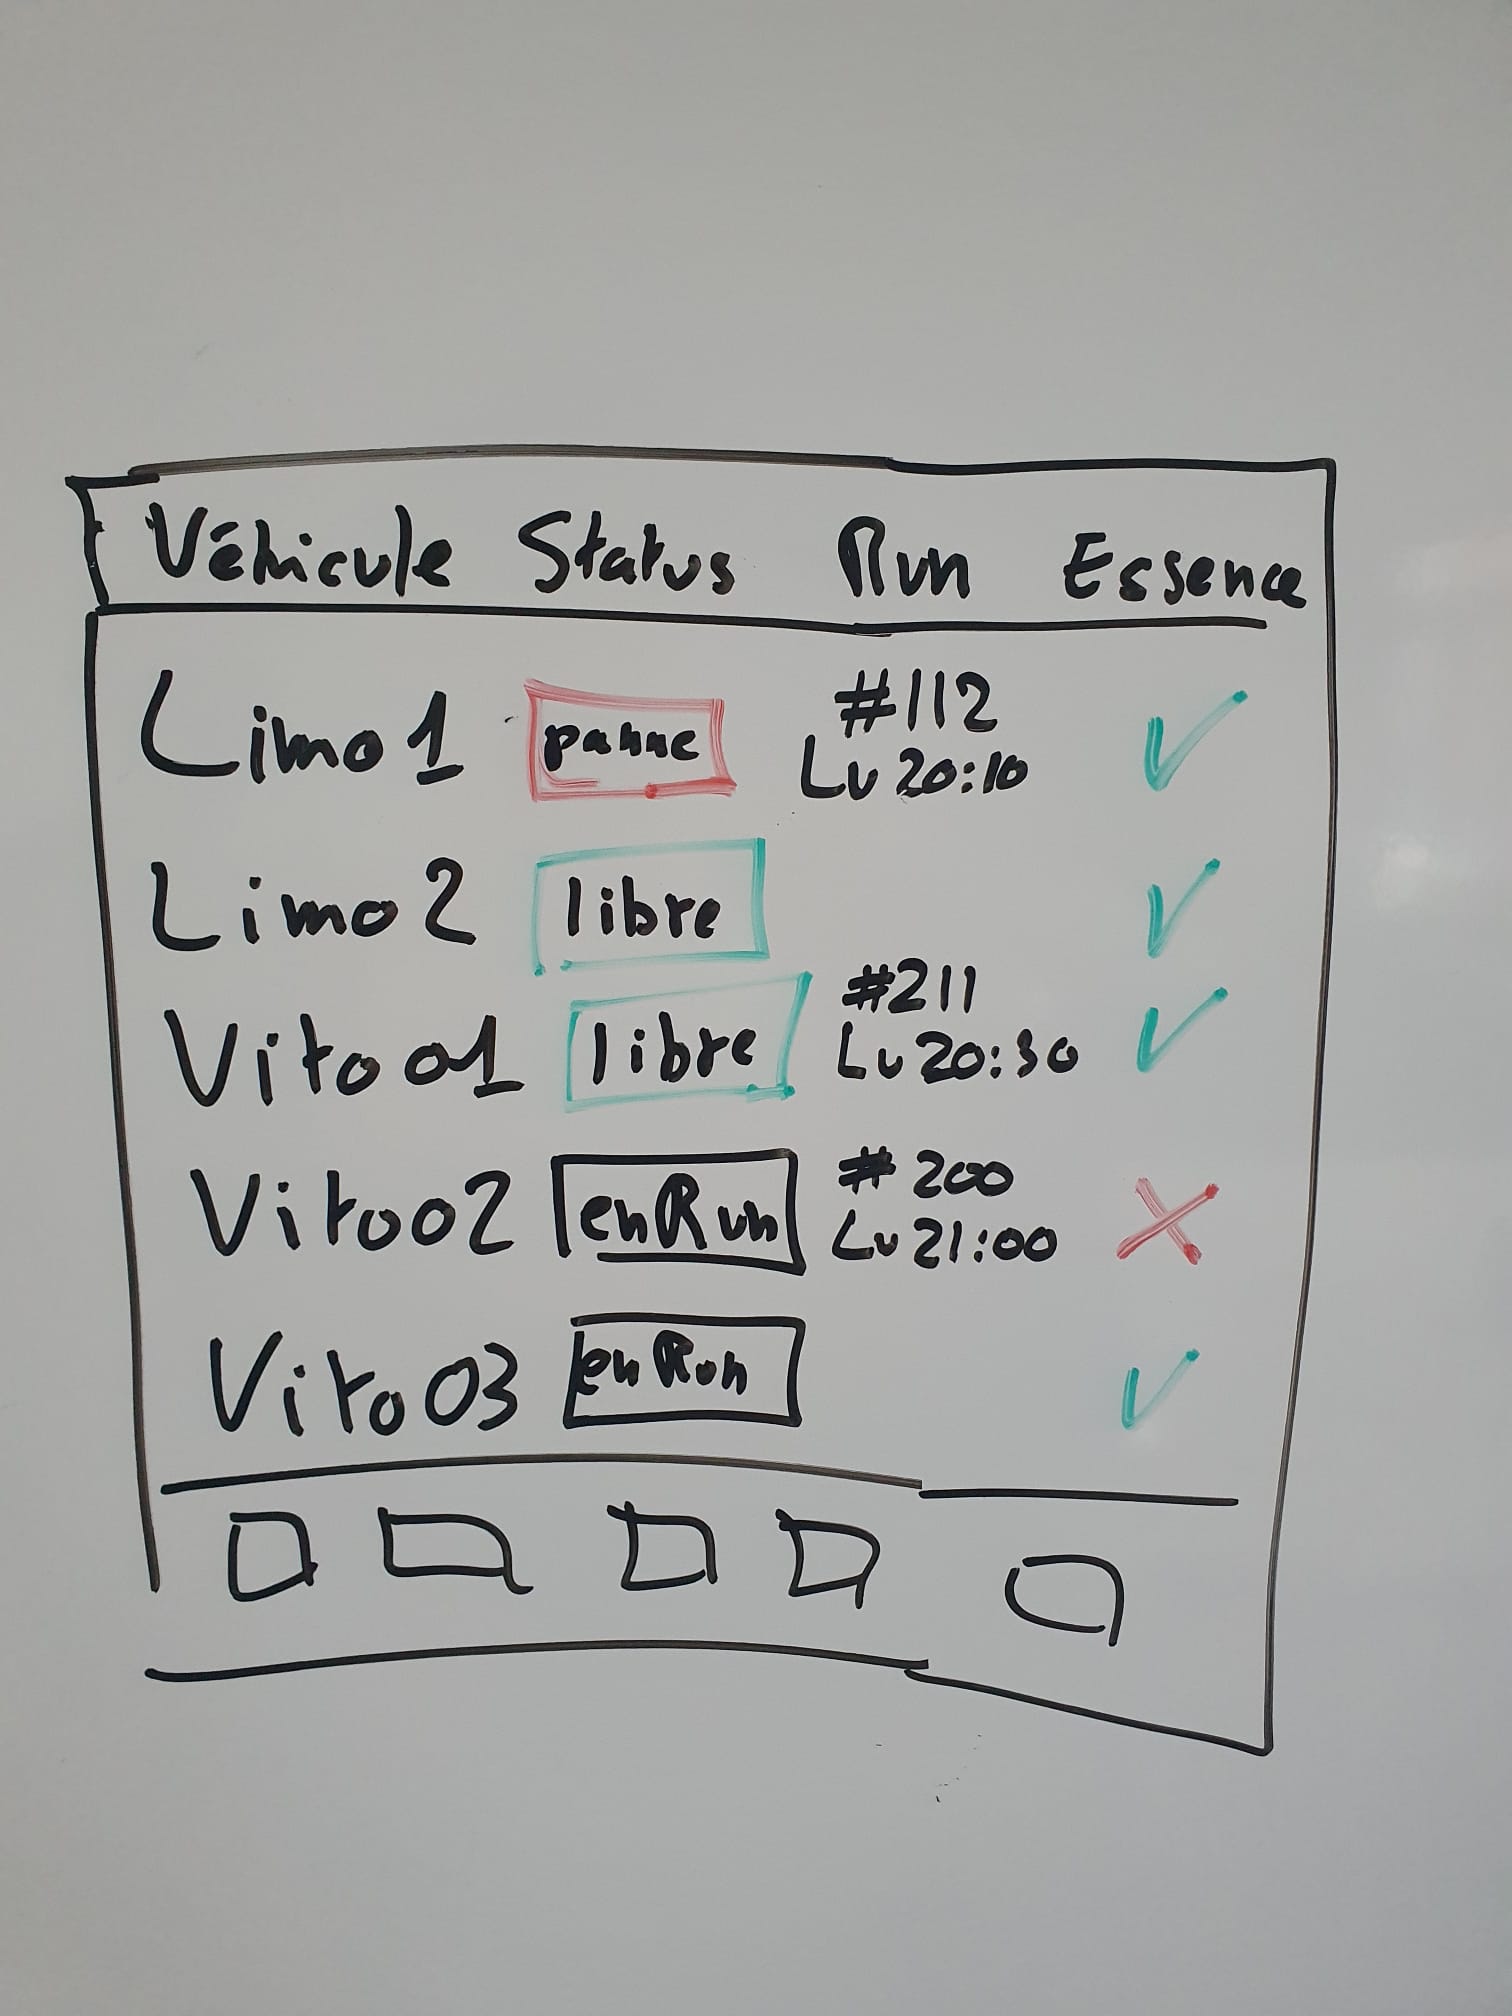 Véhicule Status Run Essence
#112
Limo 1 panne Lu 20:10 ✓
Limo 2 libre ✓
#211
Vito 01 libre Lu 20:30 ✓
# 200
Vito 02 en Run Lu 21:00 X
Vito 03 en Run ✓